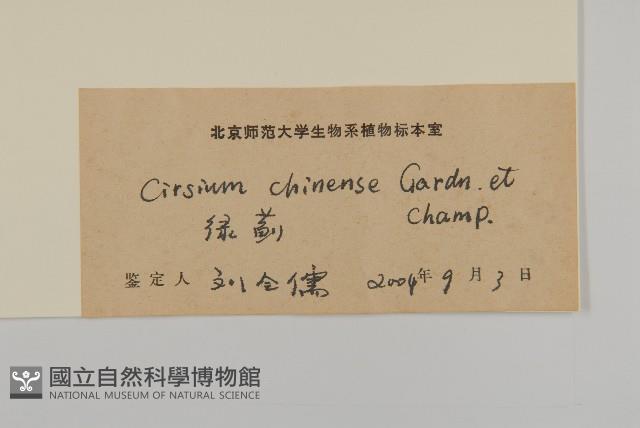 北京师范大学生物系植物标本室
Cirsium chinense Gardn. et
Champ.
绿蓟
鉴定人 刘全儒 2004年9月3日
國立自然科學博物館
NATIONAL MUSEUM OF NATURAL SCIENCE